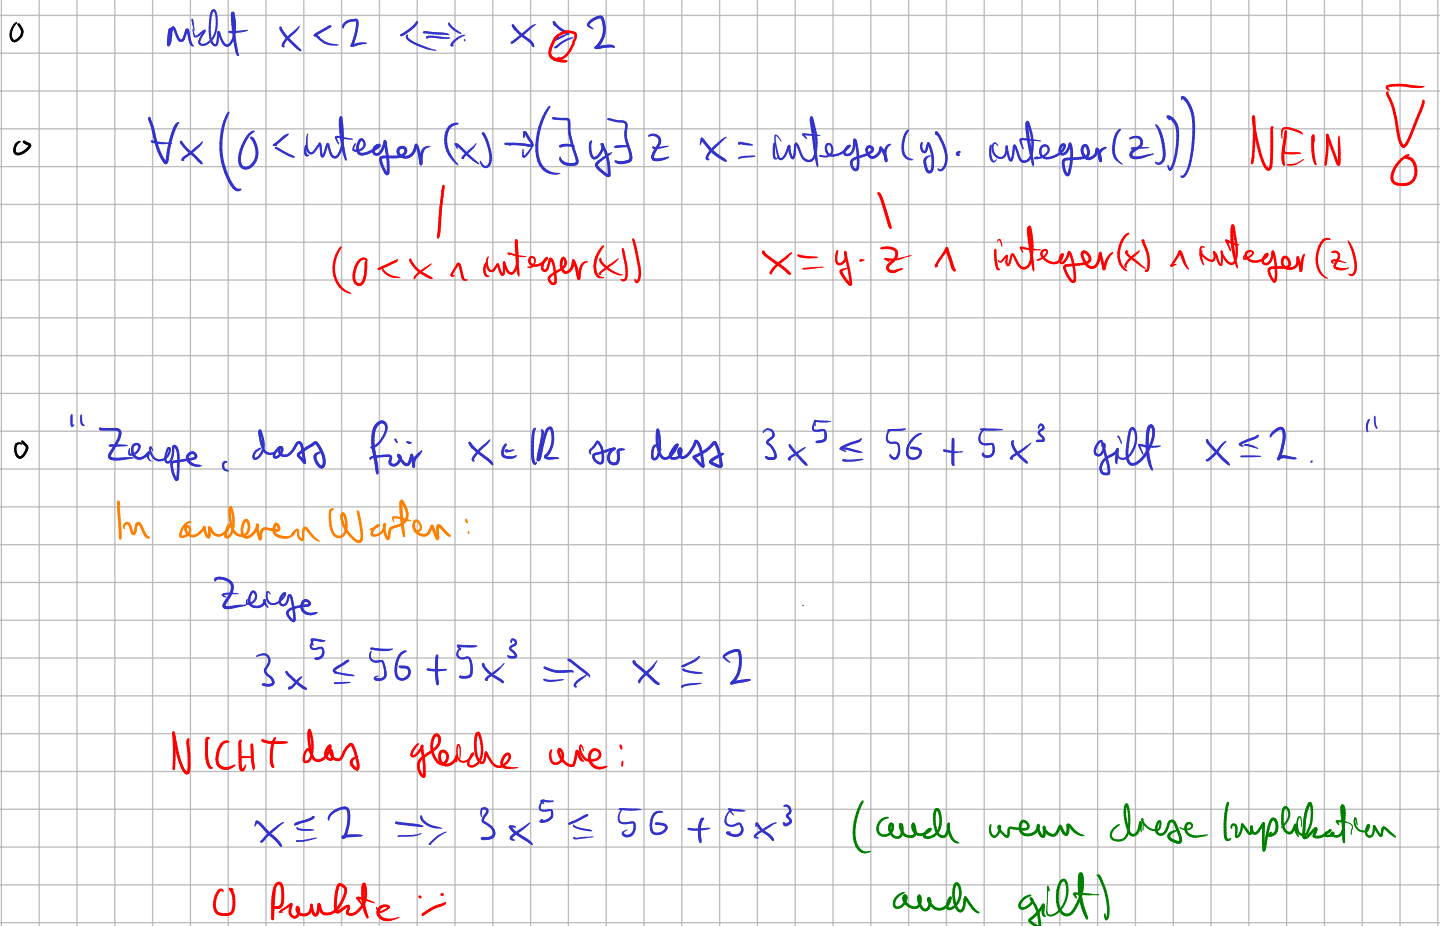 o nicht x < 2 <=> x ≥ 2
o ∀x (0 < integer (x) → (∃y∃z x = integer(y) · integer(z))) NEIN !
(0 < x ∧ integer(x)) x = y · z ∧ integer(x) ∧ integer(z)
o "Zeige, dass für x ∈ ℝ so dass 3x⁵ ≤ 56 + 5x³ gilt x ≤ 2."
In anderen Worten:
Zeige
3x⁵ ≤ 56 + 5x³ => x ≤ 2
NICHT das gleiche wie:
x ≤ 2 => 3x⁵ ≤ 56 + 5x³ (auch wenn diese Implikation
0 Punkte :- auch gilt)